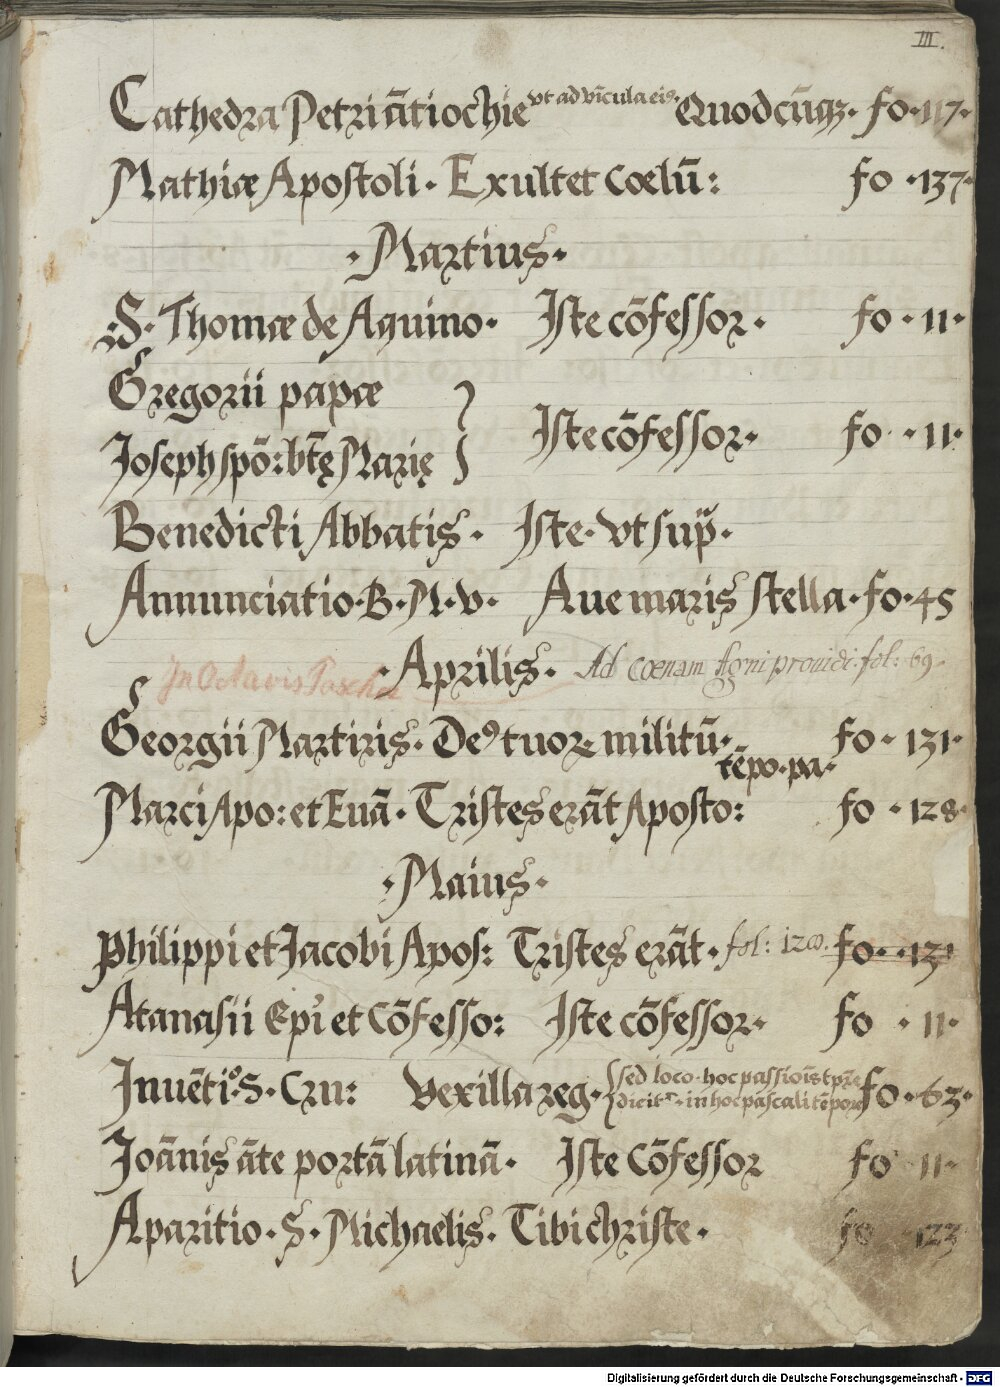 III.
Cathedra Petri ātiochie vt ad vīcula eiꝰ. Quodcūqꝫ. fo. 117.
Mathiæ Apostoli. Exultet cœlū: fo. 137.
.Martius.
S. Thomæ de Aquino. Iste cōfessor. fo. 11.
Gregorii papæ
Iste cōfessor. fo. 11.
Joseph spō: btę Marię
Benedicti Abbatis. Iste. vt sup̄.
Annunciatio. B. M. v. Aue maris stella. fo. 45
.Aprilis. Ad cœnam Agni prouidi. fol: 69.
In Octavis Paschæ
Georgii Martiris. Deꝰ tuoꝝ militū. fo. 131.
tēpo. pa.
Marci Apo: et Euā. Tristes erāt Aposto: fo. 128.
.Maius.
Philippi et Jacobi Apos: Tristes erāt. fol: 128. fo. 131
Atanasii Epi et Cōfesso: Iste cōfessor. fo. 11.
Inuētio. S. Cru: Vexilla reg. sed loco. hoc passiōis tp̄re fo. 63.
dicitr. in hoc pascali tēpore
Joānis āte portā latinā. Iste Cōfessor fo 11.
Aparitio. S. Michaelis. Tibi christe. fo 123
Digitalisierung gefördert durch die Deutsche Forschungsgemeinschaft - DFG